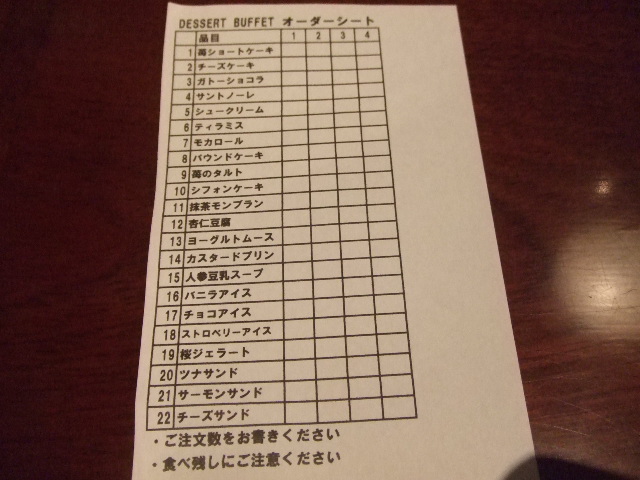 DESSERT BUFFET オーダーシート
品目 1 2 3 4
1 苺ショートケーキ
2 チーズケーキ
3 ガトーショコラ
4 サントノーレ
5 シュークリーム
6 ティラミス
7 モカロール
8 パウンドケーキ
9 苺のタルト
10 シフォンケーキ
11 抹茶モンブラン
12 杏仁豆腐
13 ヨーグルトムース
14 カスタードプリン
15 人参豆乳スープ
16 バニラアイス
17 チョコアイス
18 ストロベリーアイス
19 桜ジェラート
20 ツナサンド
21 サーモンサンド
22 チーズサンド
・ご注文数をお書きください
・食べ残しにご注意ください